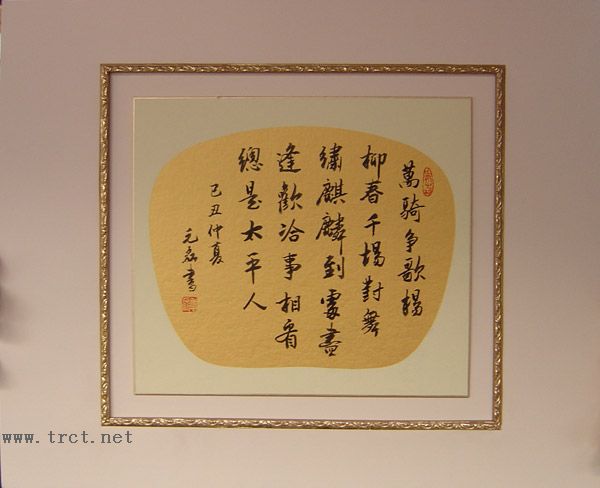 萬騎争歌楊
柳春千場對舞
繡麒麟到處盡
逢歡洽事相看
總是太平人
己丑仲夏
書
www.trct.net